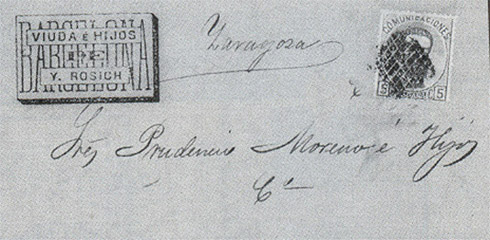 BARCELONA
VIUDA é HIJOS
DE
Y. ROSICH
BARCELONA
Zaragoza
COMUNICACIONES
5 5
Sres Prudencio Moreno é Hijos
Cª